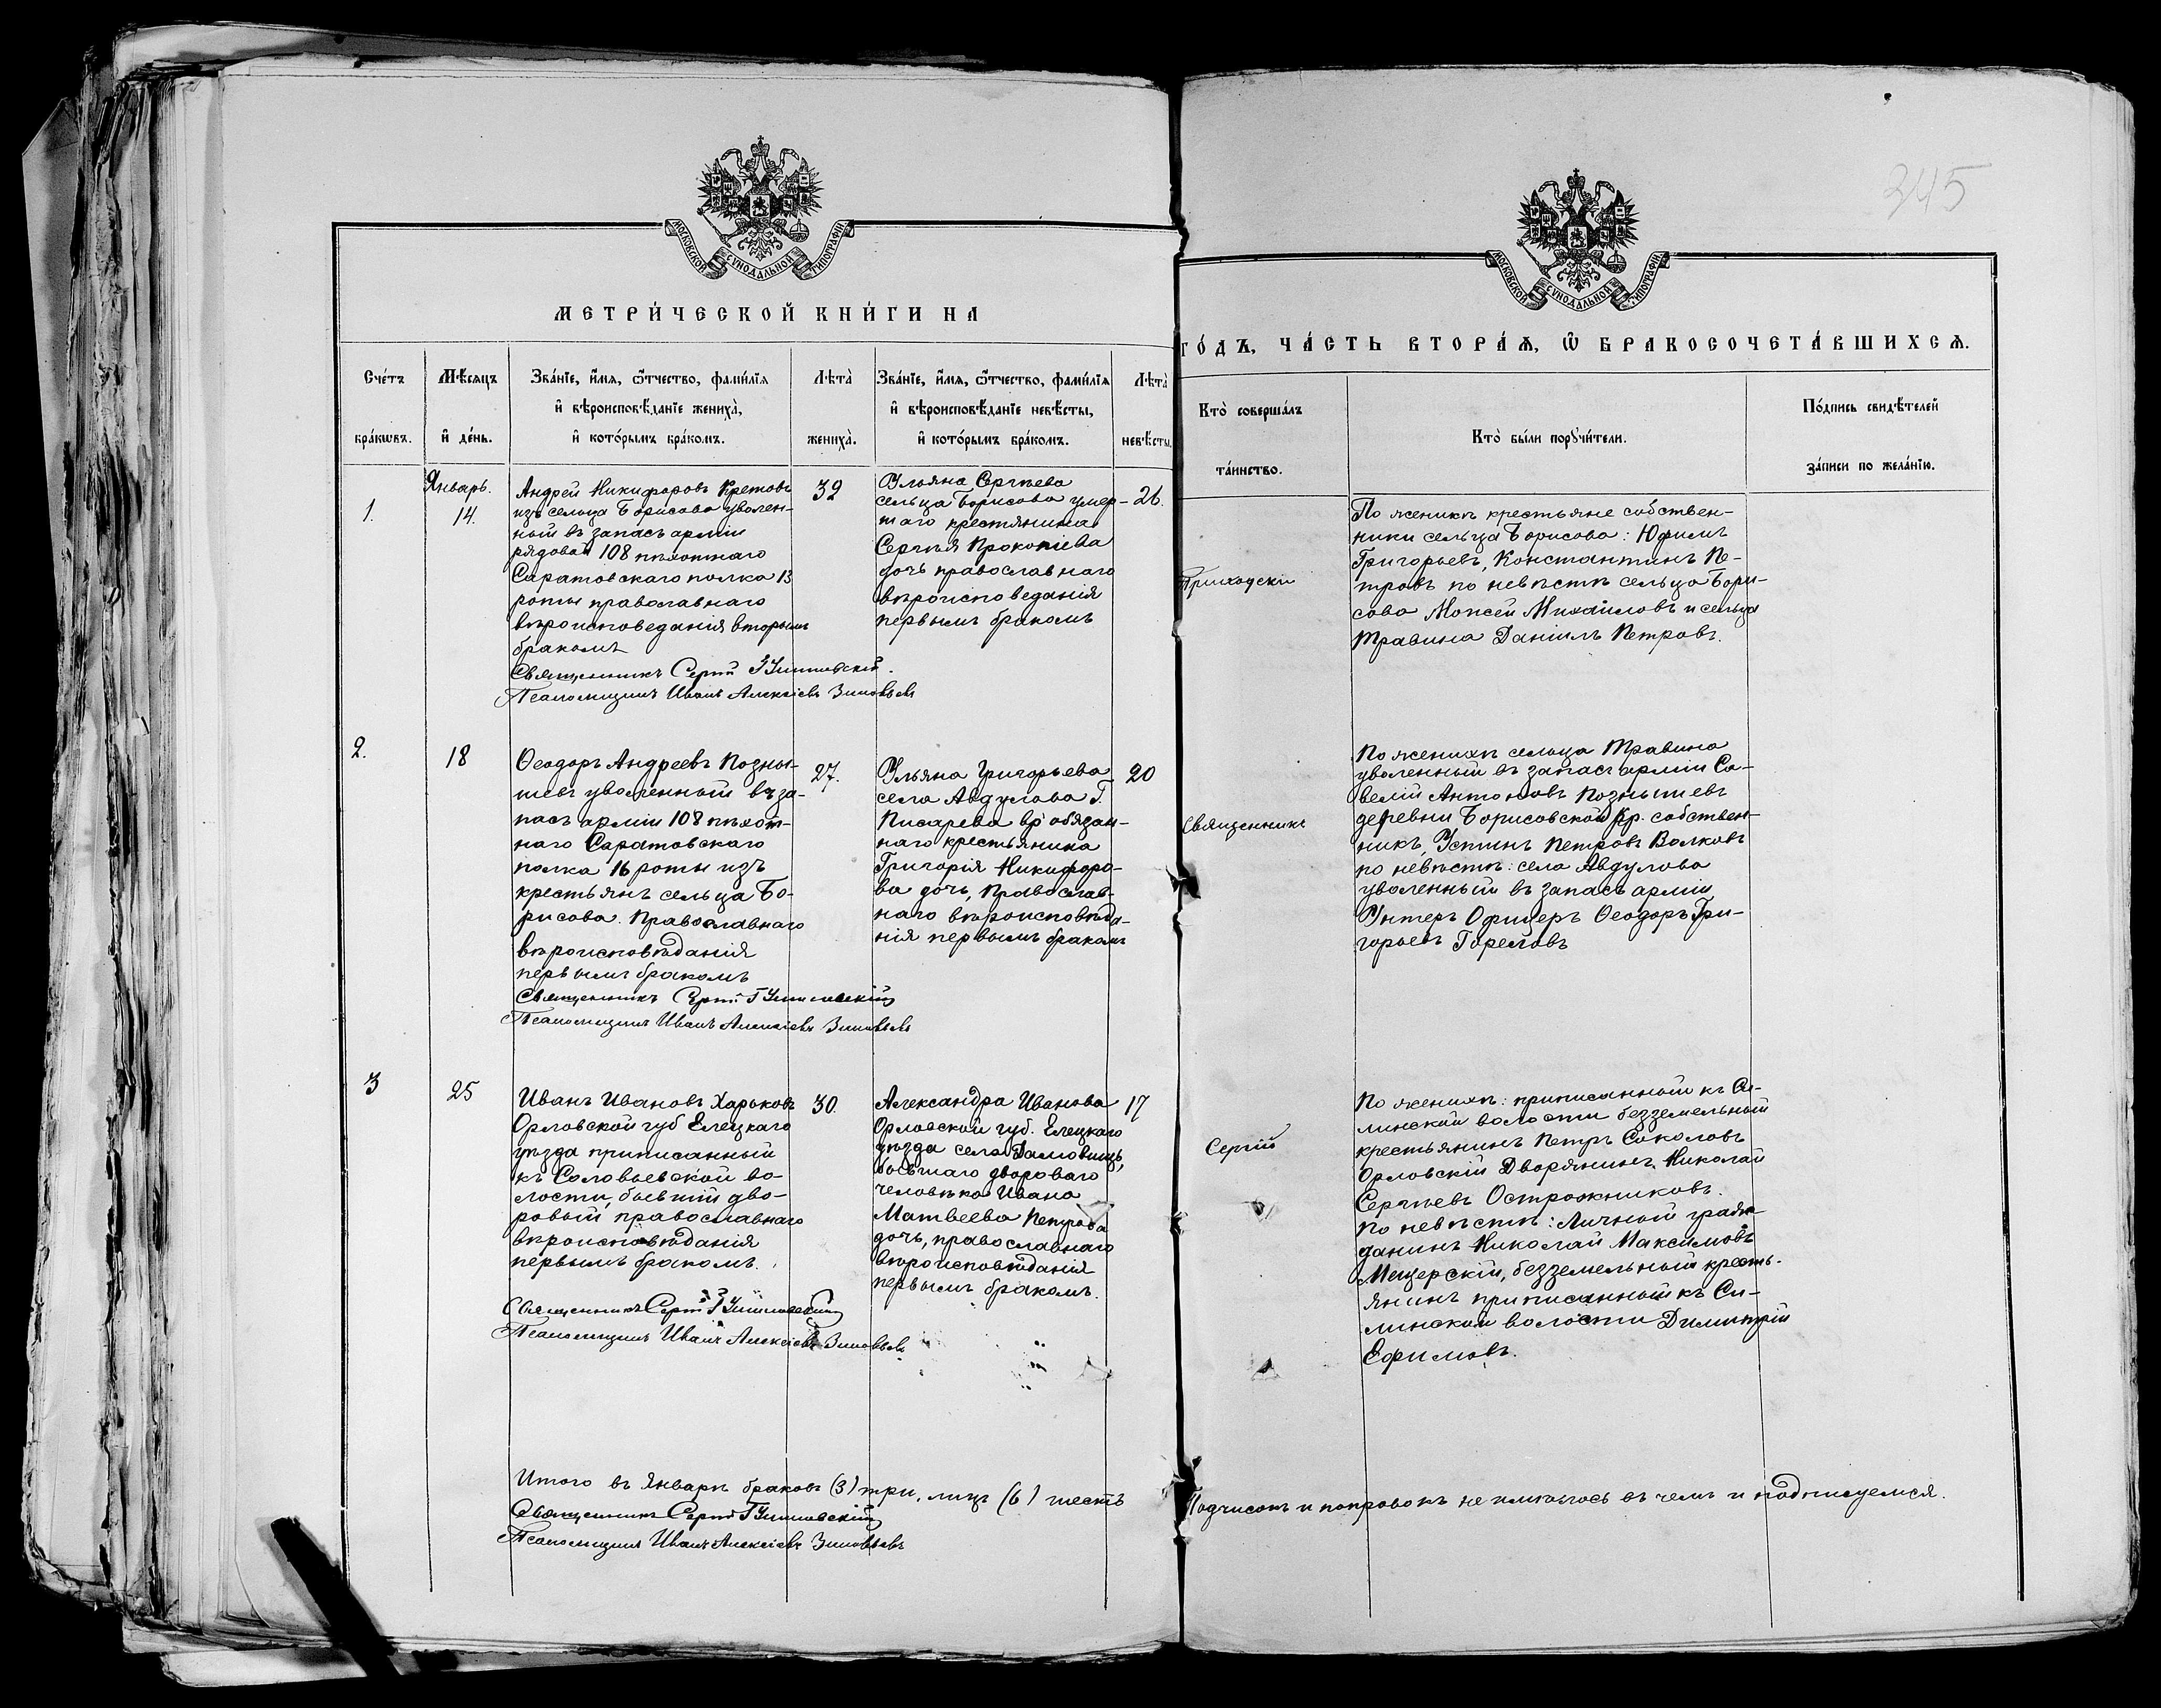 345
МОСКОВСКОЙ СѴНОДАЛЬНОЙ ТИПОГРАФІИ
МОСКОВСКОЙ СѴНОДАЛЬНОЙ ТИПОГРАФІИ
МЕТРИ́ЧЕСКОЙ КНИ́ГИ НА
ГО́ДЪ, ЧА́СТЬ ВТОРА́Ѧ, Ѡ҆ БРАКОСОЧЕТА́ВШИХСѦ.
Сче́тъ
бра́кѡвъ.
Мѣ́сѧцъ
и҆ де́нь.
Зва́нїе, и҆́мѧ, ѻ҆́тчество, фами́лїѧ
и҆ вѣроисповѣ́данїе жениха̀,
и҆ кото́рымъ бра́комъ.
Лѣ́та
жениха̀.
Зва́нїе, и҆́мѧ, ѻ҆́тчество, фами́лїѧ
и҆ вѣроисповѣ́данїе невѣ́сты,
и҆ кото́рымъ бра́комъ.
Лѣ́та
невѣ́сты.
Кто̀ соверша́лъ
та́инство.
Кто̀ бы́ли порꙋчи́тели.
По́дпись свидѣ́телей
за́писи по жела́нїю.
1.
Январь.
14.
Андрей Никифоровъ Кретовъ
изъ сельца Борисова уволен-
ный въ запасъ арміи
рядовой 108 пѣхотнаго
Саратовскаго полка 13
роты православнаго
вѣроисповеданія вторымъ
бракомъ
Священникъ Сергій
Псаломщикъ Иванъ Алексіевъ Зиновьевъ
32
Ульяна Сергѣева
сельца Борисова умер-
шаго крестянина
Сергѣя Прокопіева
дочь православнаго
вѣроисповеданія
первымъ бракомъ
26.
Приходскій
По женихѣ крестьяне собствен-
ники сельца Борисова: Юфимъ
Григорьевъ, Константинъ Пе-
тровъ по невѣстѣ сельца Бори-
сова Мойсей Михайловъ и сельца
Травина Даніилъ Петровъ.
2.
18
Ѳеодоръ Андреевъ Позны-
шевъ уволенный въ за-
пасъ арміи 108 пѣхот-
наго Саратовскаго
полка 16 роты изъ
крестьянъ сельца Бо-
рисова. Православнаго
вѣроисповѣданія
первымъ бракомъ
Священникъ Сергій
Псаломщикъ Иванъ Алексіевъ Зиновьевъ
27.
Ульяна Григорьева
села Авдулова Г.
Писарева вр обязан-
наго крестьянина
Григорія Никифоро-
ва дочь, Православ-
наго вѣроисповѣда-
нія первымъ бракомъ
20
Священникъ
По женихѣ сельца Травина
уволенный въ запасъ арміи Са-
велій Антоновъ Познышевъ
деревни Борисовской Кр. собствен-
никъ, Устинъ Петровъ Волковъ
по невѣстѣ: села Авдулова
уволенный въ запасъ арміи
Унтеръ Офицеръ Ѳеодоръ Гри-
горьевъ Горемовъ
3
25
Иванъ Ивановъ Харьковъ
Орловской губ Елецкаго
уѣзда приписанный
къ Соловьевской во-
лости, бывшій дво-
ровый, православнаго
вѣроисповѣданія
первымъ бракомъ.
Священникъ Сергій
Псаломщикъ Иванъ Алексіевъ Зиновьевъ
30.
Александра Иванова
Орловской губ. Елецкаго
уѣзда села
бывшаго двороваго
человѣка Ивана
Матвеева Петрова
дочь, православнаго
вѣроисповѣданія
первымъ бракомъ.
17
Сергій
По женихѣ: приписанный къ Сл-
линской волости безземельный
крестьянинъ Петръ Соколовъ
Орловскій Дворянинъ Николай
Сергѣевъ Острожниковъ.
По невѣстѣ: Личный граж-
данинъ Николай Максимовъ
Мещерскій, безземельный кресть-
янинъ приписанный къ Сл-
линской волости Димитрій
Ефимовъ.
Итого въ Январѣ браковъ (3) три, лицъ (6) шесть
Подчисокъ и поправокъ не имѣлось въ чемъ и подписуемся.
Священникъ Сергій
Псаломщикъ Иванъ Алексіевъ Зиновьевъ